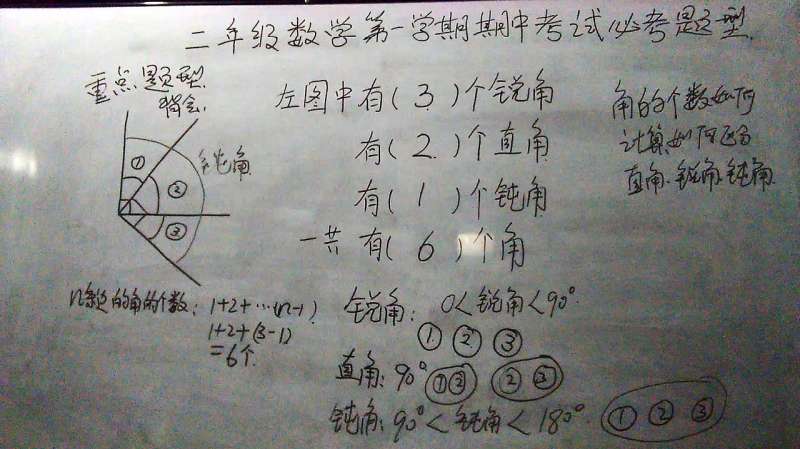 二年级数学第一学期期中考试必考题型.
重点题型.
背会.
左图中有(3)个锐角
有(2)个直角
有(1)个钝角
一共有(6)个角
角的个数如何
计算如何区分
直角.锐角.钝角.
① ② ③
钝角
n条边的角的个数: 1+2+…(n-1)
1+2+(3-1)
=6个.
锐角: 0<锐角<90°
① ② ③
直角: 90° ①② ② ③
钝角: 90°<钝角<180°. ① ② ③